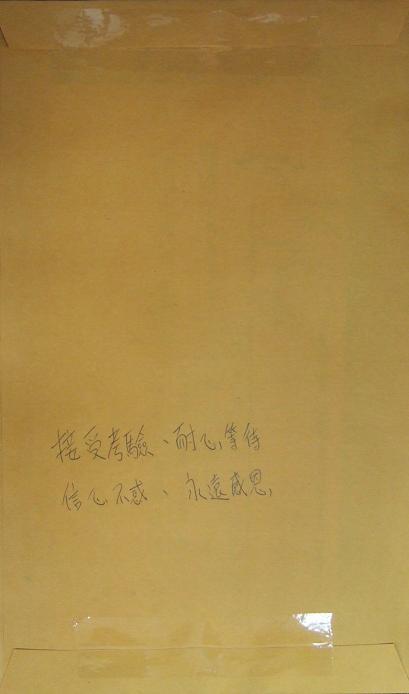 接受考驗、耐心等待
信心不惑、永遠感恩